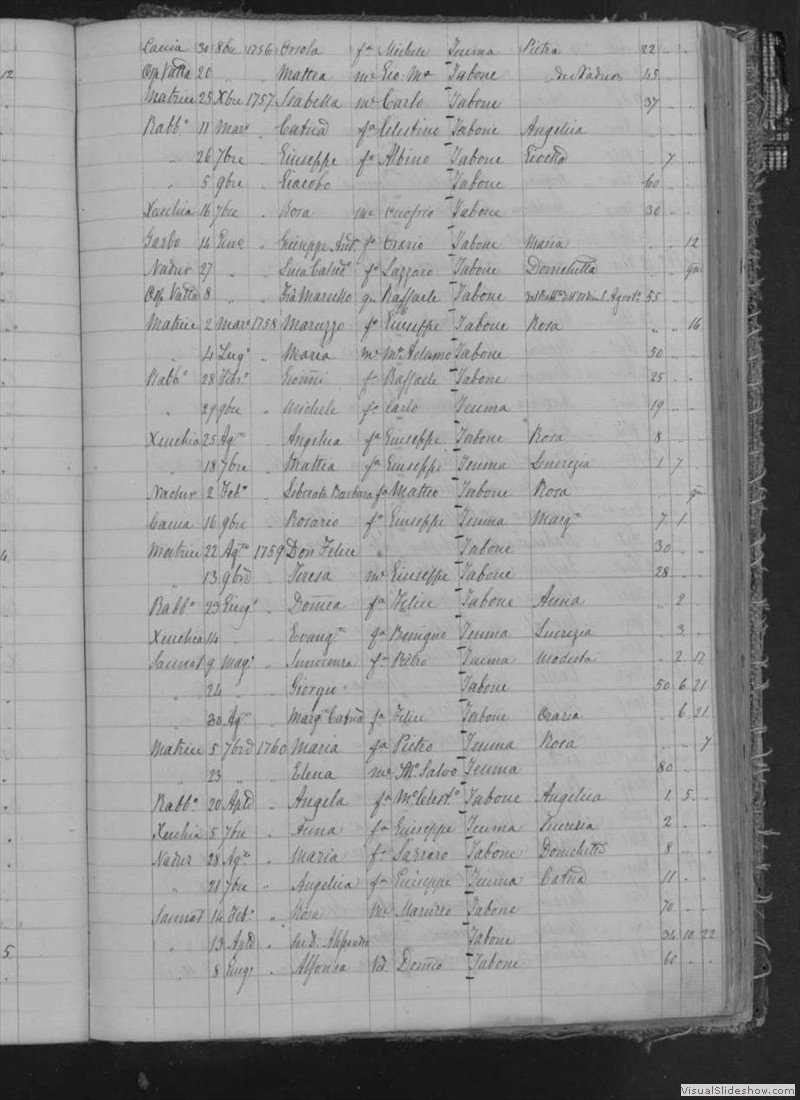 Caccia 30 8bre 1756 Orsola fa Michele Teuma Pietra 22
12
Osp. Valta 20 " Mattea me Gio Ma Tabone de Nadur 45
Matrice 25 Xbre 1757 Isabella me Carlo Tabone 37
Rabbo 11 Mar. " Catna fa Celestino Tabone Angelica
" 26 7bre Giuseppe fo Albino Tabone 7
" 5 9bre " Giacobo Tabone 60
Xeuchia 16 7bre " Rosa me Onofrio Tabone 30
Garbo 14 Giuseppe Ant. fo Orazio Tabone Maria 12
Nadur 27 " fa Lazzaro Tabone Domchetta
Osp. Valta 8 " " Marcello qm Raffaele Tabone 55
Matrice 2 Mar. 1758 Maruzzo fo Giuseppe Tabone Rosa 16
" 4 Lugo " Maria me Mo Adamo Tabone 50
Rabbo 28 Febo Gionni fo Raffaele Tabone 25
" 29 9bre " Michele fo Carlo Teuma 19
Xeuchia 25 Ago " Angelica fa Giuseppe Tabone Rosa 8
18 7bre " Mattia fa Giuseppe Teuma Lucrezia 1 7
Nadur 2 Febo " Liberata Barbara fa Matteo Tabone Rosa
Caccia 16 9bre " Rosario fo Giuseppe Teuma Margta 7 1
4.
Matrice 22 Ago 1759 Don Felice " Tabone 30
13 9bre " Teresa me Giuseppe Tabone 28
Rabbo 23 Giugo " Domca fa Felice Tabone Anna " 2
Xeuchia 14 " Evangta fa Benigno Teuma Lucrezia 3
Sannat 9 Mago " Innocenza fa Pietro Teuma Modesta 2 17
" 24 Giorgio Tabone 50 6 21
" 30 Ago Margta Catna fa Felice Tabone Orazia 6 21
Matrice 5 7bre 1760 Maria fa Pietro Teuma Rosa 7
" 23 " " Elena me Mo Salvo Teuma 80
Rabbo 20 Aple " Angela fa Mo Celesto Tabone Angelica 1 5
Xeuchia 5 7bre " Anna fa Giuseppe Teuma Lucrezia 2
Nadur 28 Ago " Maria fa Lazzaro Tabone Domchetta 8
" 21 7bre " Angelica fa Giuseppe Teuma Catna 11
Sannat 14 Febo " Rosa me Maruzzo Tabone 70
5.
" 13 Aple " Tabone 34 10 22
" 8 Giugo " Alfonsa Va Domco Tabone 60
VisualSlideshow.com